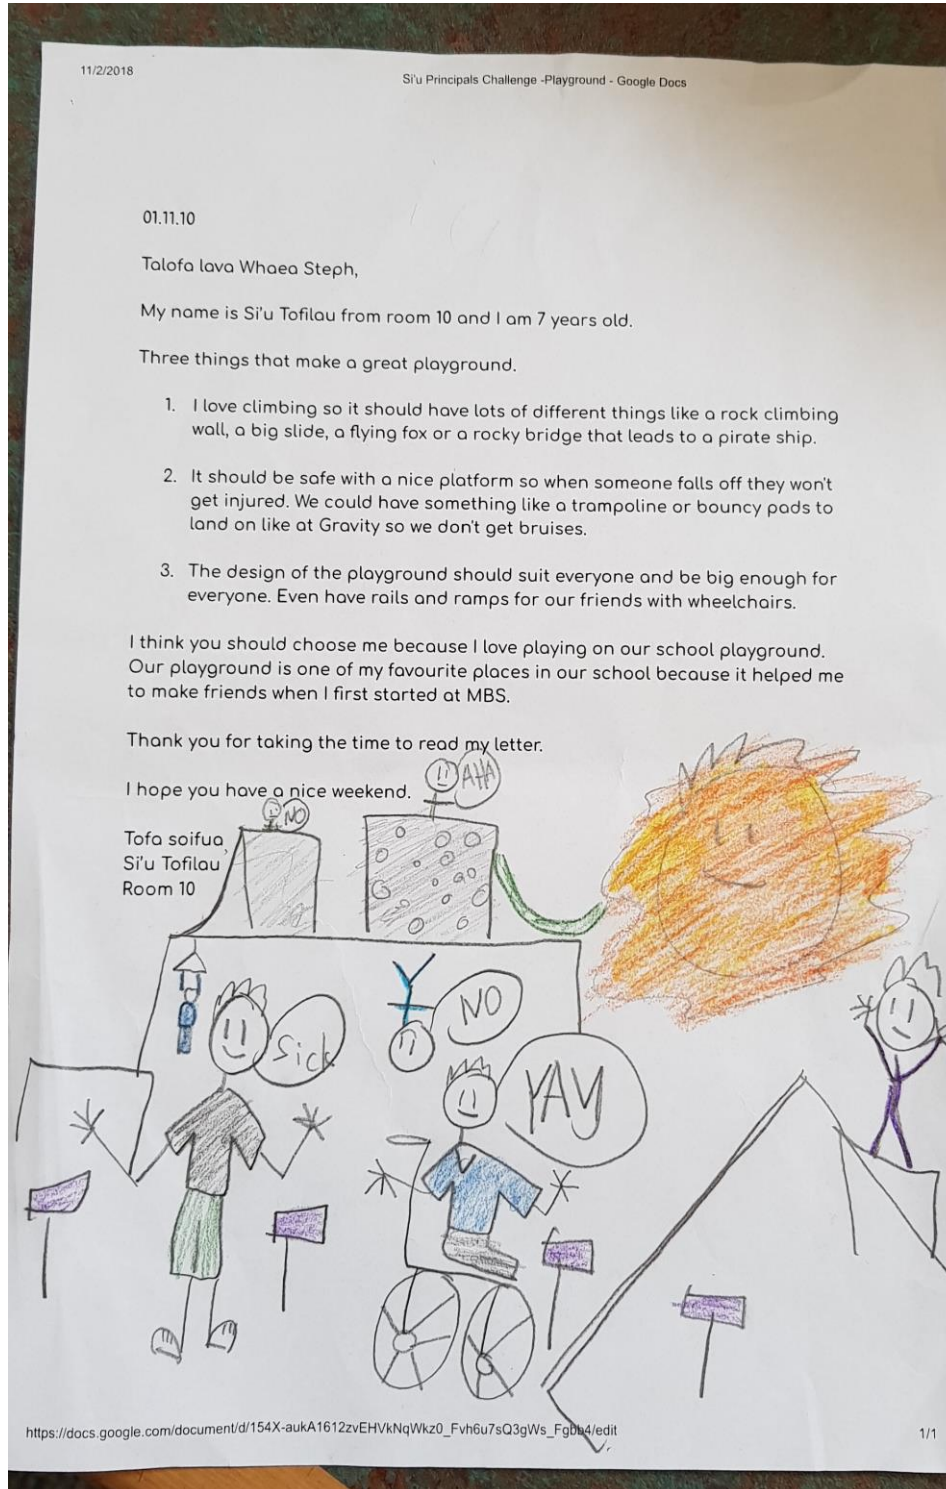 11/2/2018
Si'u Principals Challenge -Playground - Google Docs
01.11.10
Talofa lava Whaea Steph,
My name is Si'u Tofilau from room 10 and I am 7 years old.
Three things that make a great playground.
1. I love climbing so it should have lots of different things like a rock climbing
wall, a big slide, a flying fox or a rocky bridge that leads to a pirate ship.
2. It should be safe with a nice platform so when someone falls off they won't
get injured. We could have something like a trampoline or bouncy pads to
land on like at Gravity so we don't get bruises.
3. The design of the playground should suit everyone and be big enough for
everyone. Even have rails and ramps for our friends with wheelchairs.
I think you should choose me because I love playing on our school playground.
Our playground is one of my favourite places in our school because it helped me
to make friends when I first started at MBS.
Thank you for taking the time to read my letter.
I hope you have a nice weekend.
AHA
NO
Tofa soifua,
Si'u Tofilau
Room 10
NO
Sick
YAY
1/1